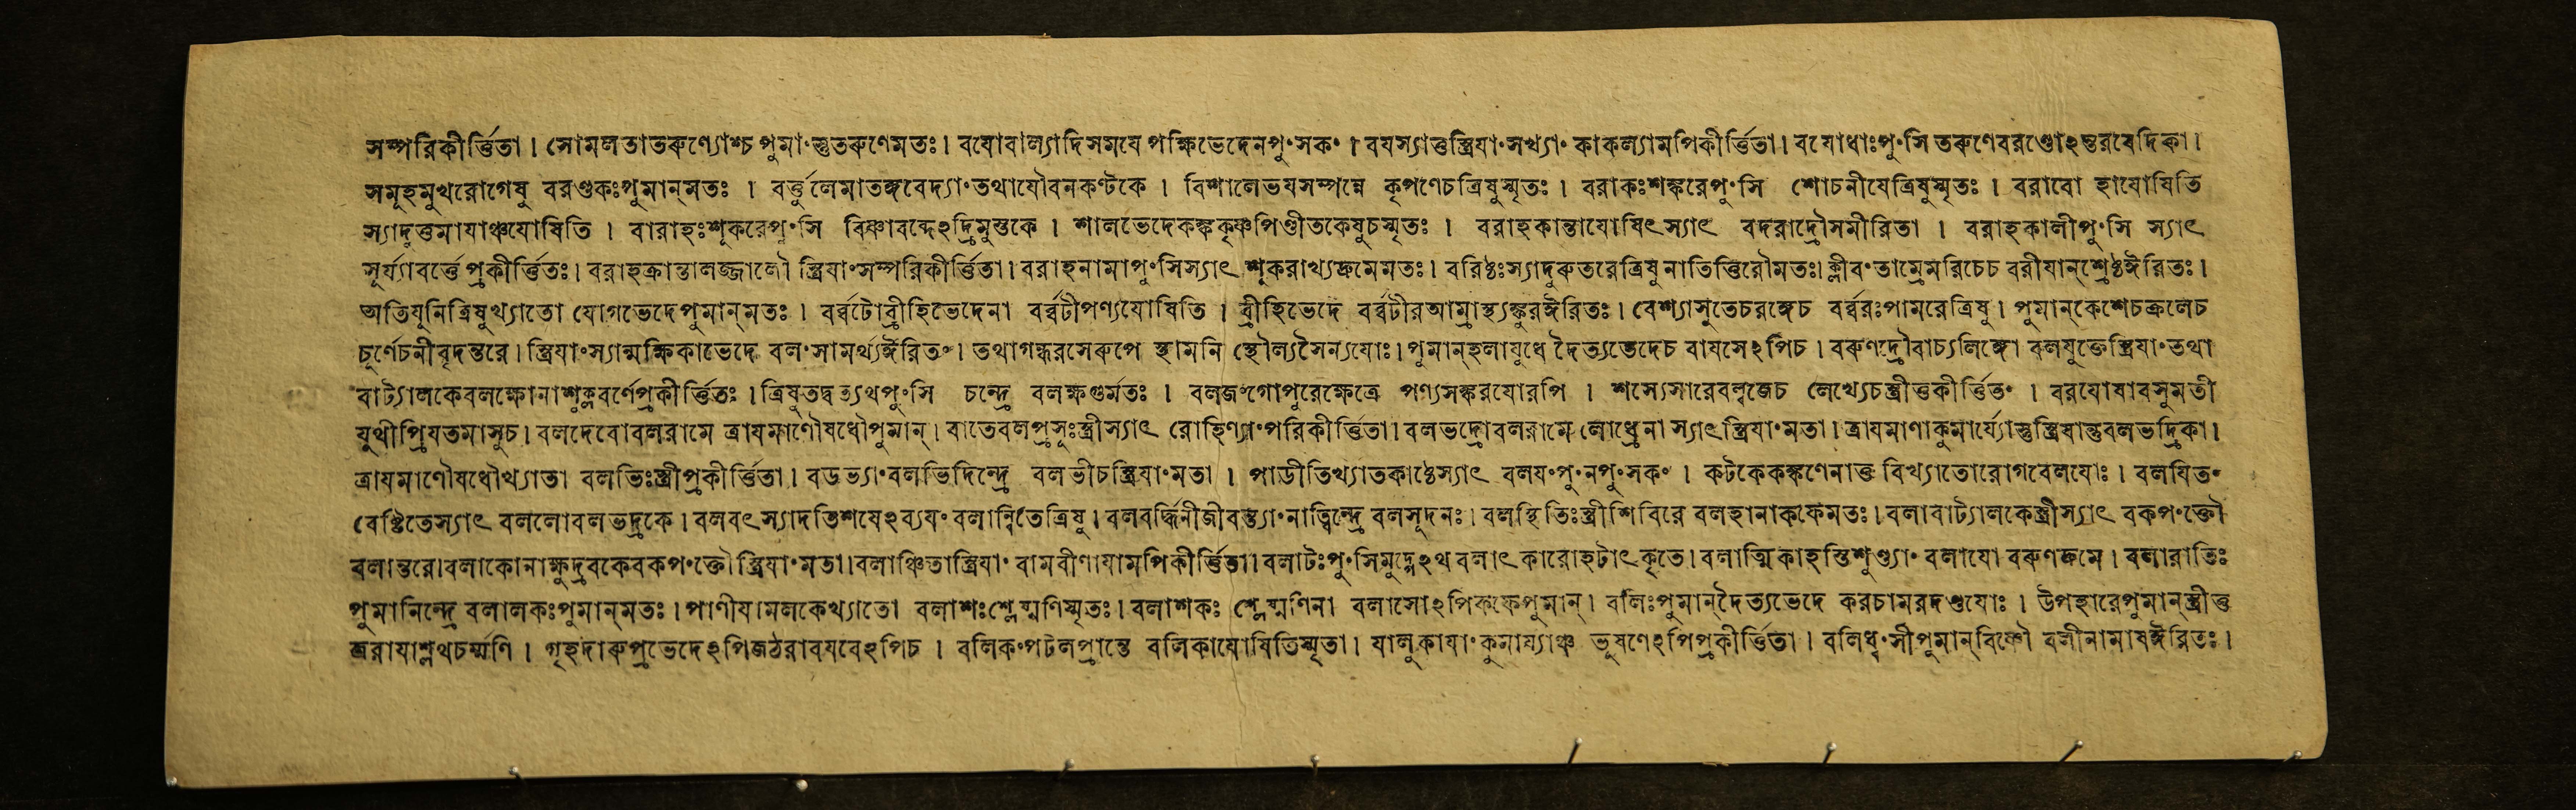 সম্পরিকীর্ত্তিতা । সোমলতাতরুণ্যোশ্চ পুমাংস্তুতরুণেমতঃ । বযোবাল্যাদিসমযে পক্ষিভেদেনপুংসকং । বযস্যাতুস্ত্রিযাংসখ্যাং কাকল্যামপিকীর্ত্তিতা । বযোধাঃপুংসি তরুণেবরণ্ডোঽন্তরবেদিকা ।
সমূহমুখরোগেষু বরণ্ডকঃপুমান্মতঃ । বর্ত্তুলেমাতঙ্গবেদ্যাংতথাযৌবনকণ্টকে । বিশালেভযসম্পন্নে কৃপণেচত্রিষুস্মৃতঃ । বরাকঃশঙ্করেপুংসি শোচনীযেত্রিষুস্মৃতঃ । বরাবো হাযোষিতি
স্যাদুত্তমাযাঞ্চযোষিতি । বারাহঃশূকরেপুংসি বিষ্ণাবব্দেঽদ্রিমুস্তকে । শালভেদেকঙ্ককৃষ্ণপিণ্ডীতকেষুচস্মৃতঃ । বরাহকান্তাযোষিৎস্যাৎ বদরাদ্রৌসমীরিতা । বরাহকালীপুংসি স্যাৎ
সূর্য্যাবর্ত্তেপ্রকীর্ত্তিতঃ । বরাহক্রান্তালজ্জালৌ স্ত্রিযাংসম্পরিকীর্ত্তিতা । বরাহনামাপুংসিস্যাৎ শূকরাখ্যদ্রুমেমতঃ । বরিষ্ঠঃস্যাদুরুতরেত্রিষুনাতিত্তিরৌমতঃ । ক্লীবংতাম্রেমরিচেচ বরীযান্শ্রেষ্ঠঈরিতঃ ।
অতিযুনিত্রিষুখ্যাতো যোগভেদেপুমান্মতঃ । বর্ব্বটোব্রীহিভেদেনা বর্ব্বটীপণ্যযোষিতি । ব্রীহিভেদে বর্ব্বটীরআম্রাস্থ্যঙ্কুরঈরিতঃ । বেশ্যাসুতেচরঙ্গেচ বর্ব্বরঃপামরেত্রিষু । পুমান্কেশেচক্রলেচ
চূর্ণেচনীবৃদন্তরে । স্ত্রিযাংস্যান্মক্ষিকাভেদে বলংসামর্থ্যঈরিতং । তথাগন্ধরসেরূপে স্থামনি স্থৌল্যসৈন্যযোঃ । পুমান্হলাযুধে দৈত্যভেদেচ বাযসেঽপিচ । বরুণদ্রৌবাচ্যলিঙ্গো বলযুক্তেস্ত্রিযাংতথা
বাট্যালকেবলক্ষোনাশুক্লবর্ণেপ্রকীর্ত্তিতঃ । ত্রিষুতদ্বত্যথপুংসি চন্দ্রে বলক্ষগুর্মতঃ । বলজংগোপুরেক্ষেত্রে পণ্যসঙ্করযোরপি । শস্যেসারেবল্বজেচ লেখ্যেচস্ত্রীতুকীর্ত্তিতং । বরযোষাবসুমতী
যূথীপ্রিযতমাসুচ । বলদেবোবলরামে ত্রাযমাণৌষধৌপুমান্ । বাতেবলপ্রসূঃস্ত্রীস্যাৎ রোহিণ্যাংপরিকীর্ত্তিতা । বলভদ্রোবলরামে লোধ্রেনা স্যাৎস্ত্রিযাংমতা । ত্রাযমাণাকুমার্য্যোস্তুস্ত্রিযান্তুবলভদ্রিকা ।
ত্রাযমাণৌষধৌখ্যাতা বলভিঃস্ত্রীপ্রকীর্ত্তিতা । বডভ্যাংবলভিদিন্দ্রে বলভীচস্ত্রিযাংমতা । পাডীতিখ্যাতকাষ্ঠেস্যাৎ বলযংপুংনপুংসকং । কটকেকঙ্কণেনাতু বিখ্যাতোরোগবেলযোঃ । বলযিতং
বেষ্টিতেস্যাৎ বললোবলভদ্রকে । বলবৎস্যাদতিশযেঽব্যযং বলান্বিতেত্রিষু । বলবর্দ্ধিনীজীবন্ত্যাংনাত্বিন্দ্রে বলসূদনঃ । বলস্থিতিঃস্ত্রীশিবিরে বলহানাকফেমতঃ । বলাবাট্যালকেস্ত্রীস্যাৎ বকপংক্তৌ
বলান্তরে । বলাকোনাক্ষুদ্রবকেবকপংক্তৌ স্ত্রিযাংমতা । বলাঞ্চিতাস্ত্রিযাং বামবীণাযামপিকীর্ত্তিতা । বলাটঃপুংসিমুদ্গেঽথ বলাৎকারোহটাৎকৃতে । বলাত্মিকাহস্তিশুণ্ড্যাং বলাযো বরুণদ্রুমে । বলারাতিঃ
পুমানিন্দ্রে বলালকঃপুমান্মতঃ । পাণীযামলকেখ্যাতো বলাশঃশ্লেষ্মণিস্মৃতঃ । বলাশকঃ শ্লেষ্মণিনা বলাসোঽপিকফেপুমান্ । বলিঃপুমান্দৈত্যভেদে করচামরদণ্ডযোঃ । উপহারেপুমান্স্ত্রীতু
জরাযাশ্লথচর্ম্মণি । গৃহদারুপ্রভেদেঽপিজঠরাবযবেঽপিচ । বলিকংপটলপ্রান্তে বলিকাযোষিতিস্মৃতা । যালুকাযাংকুমায্যাঞ্চ ভূষণেঽপিপ্রকীর্ত্তিতা । বলিধ্বংসীপুমান্বিষ্ণৌ বলীনামাষঈরিতঃ ।